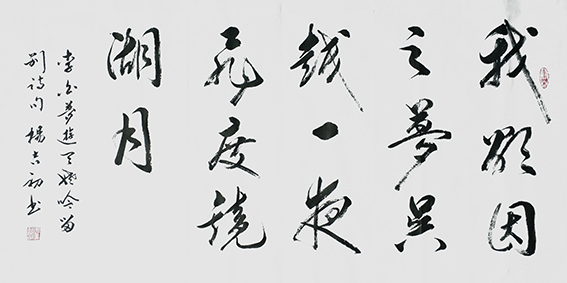 我欲因
之夢吳
越一夜
飛度鏡
湖月
李白夢遊天姥吟留
別詩句 楊 初書